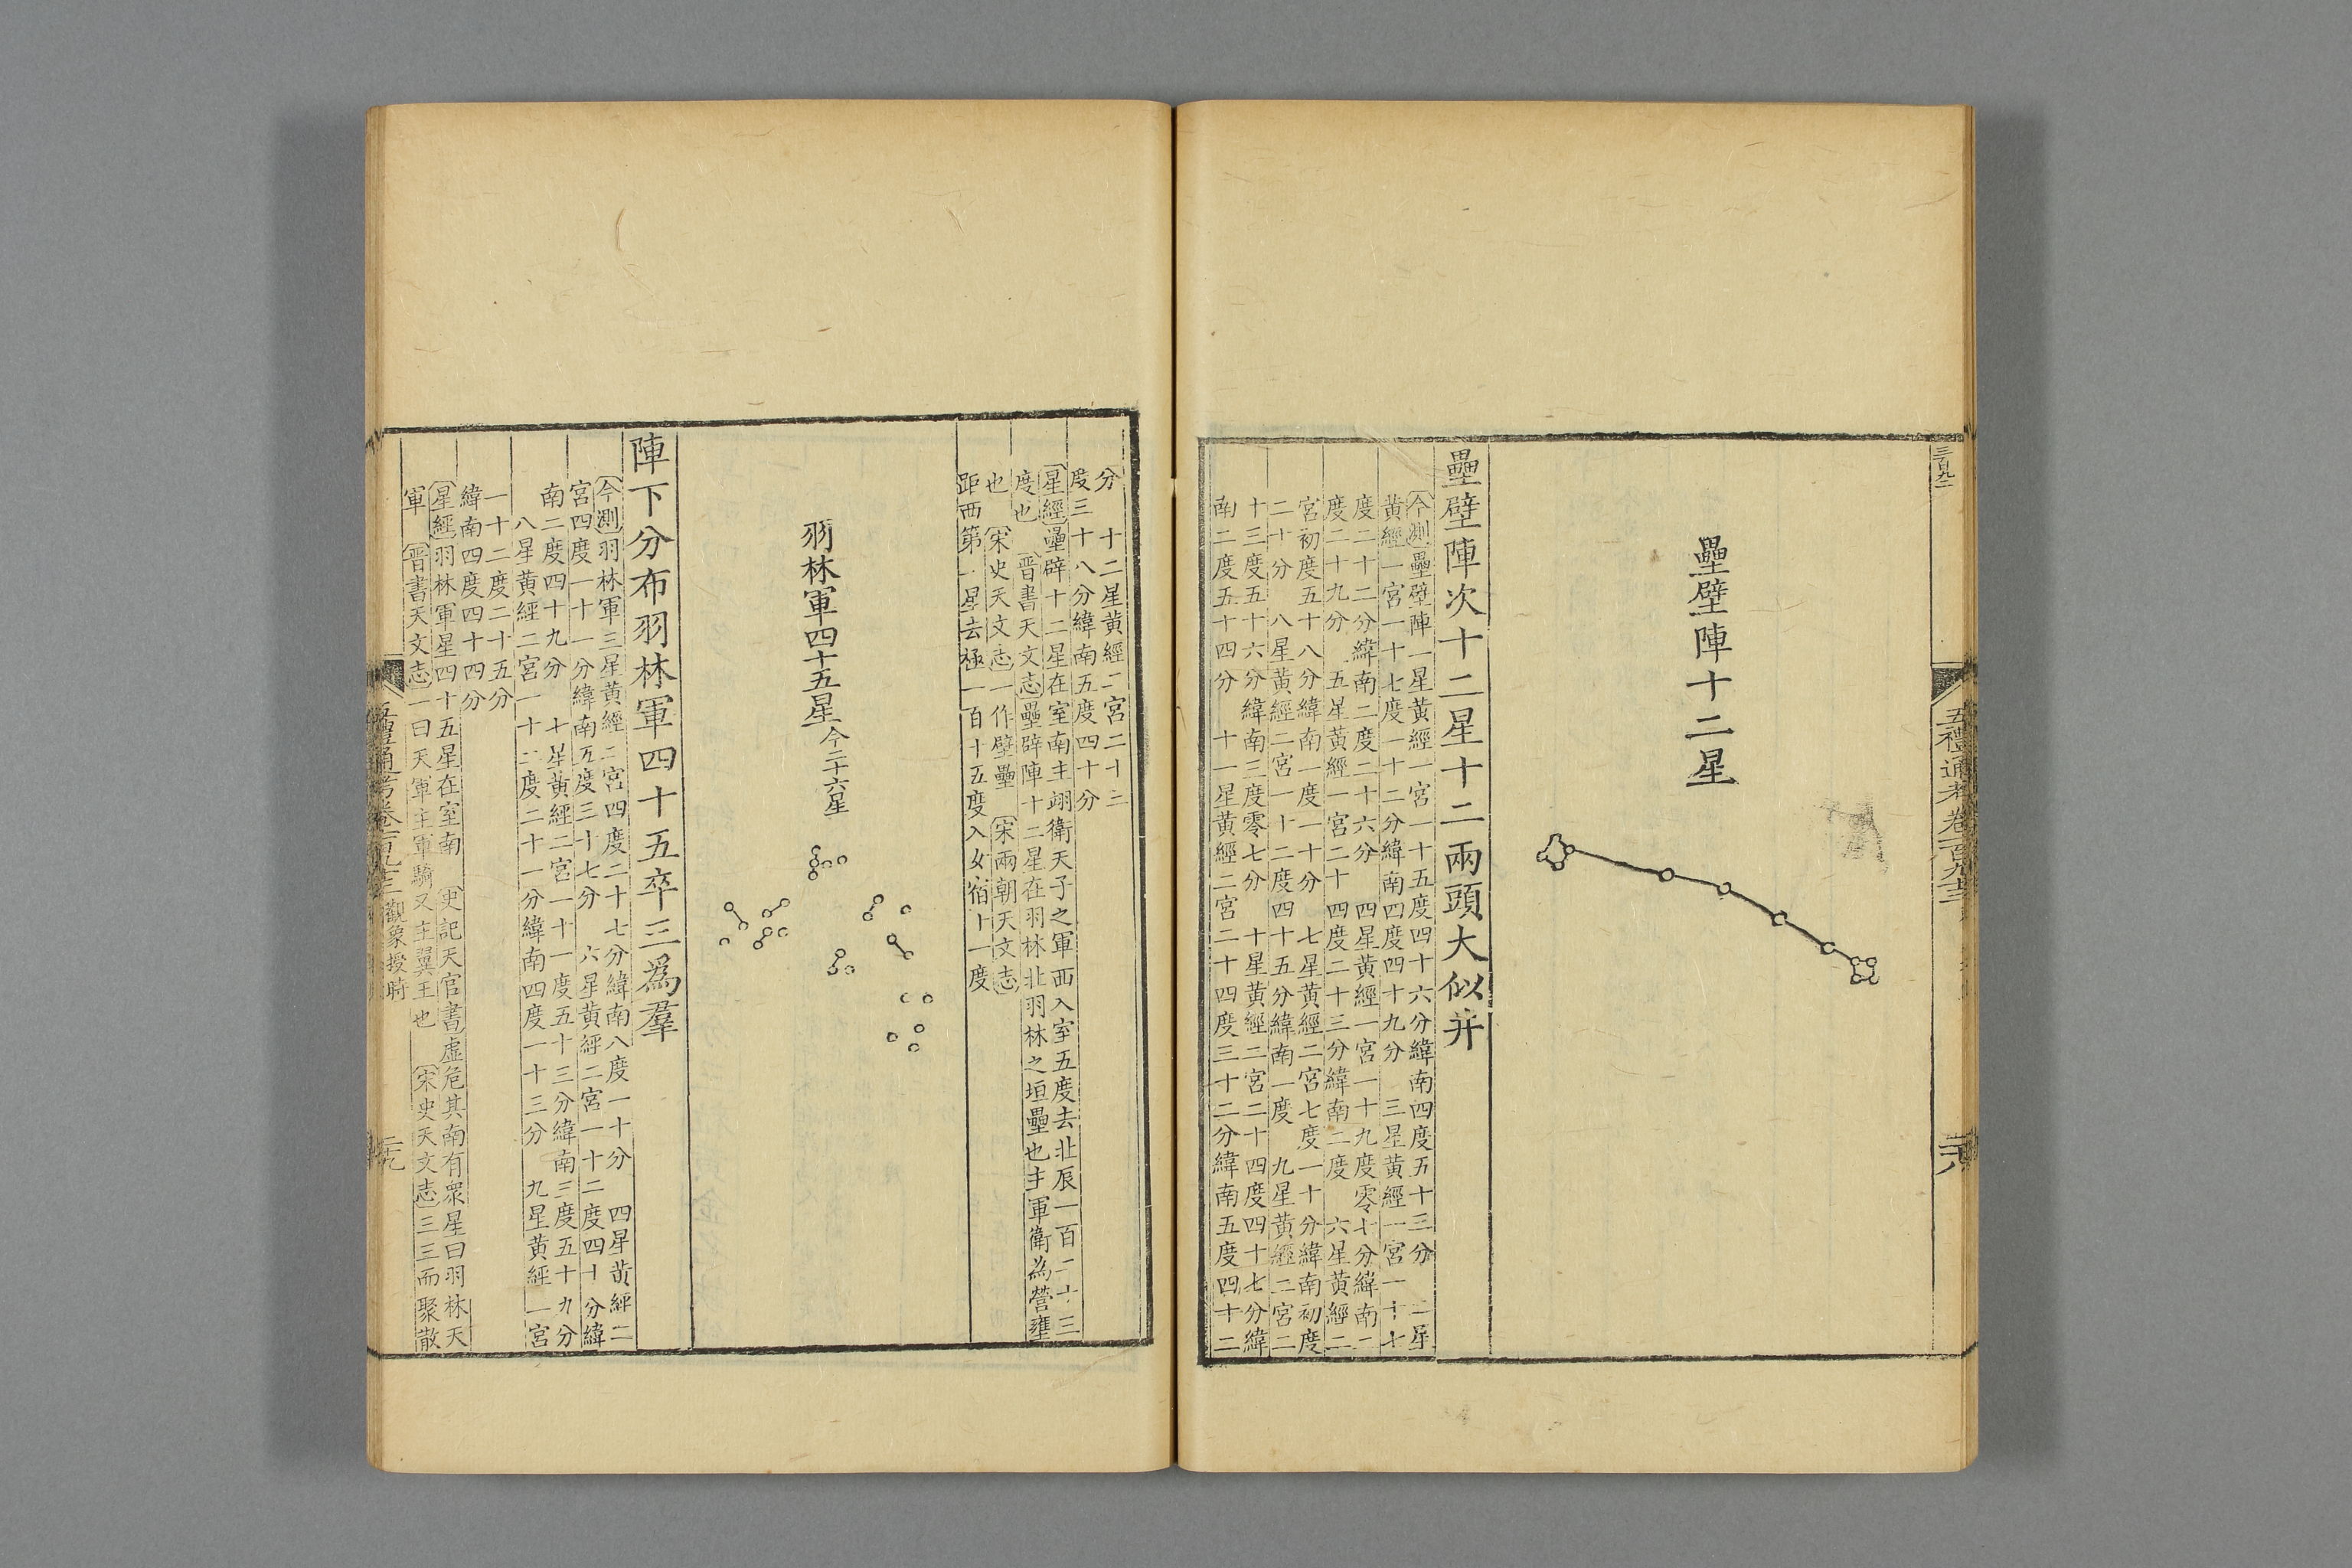 三百九二
五禮通考卷一百九十三
二十八
壘壁陣十二星
壘壁陣次十二星十二兩頭大似井
今測壘壁陣一星黃經一宮一十五度四十六分緯南四度五十三分 二星
黃經一宮一十七度一十二分緯南四度四十九分 三星黃經一宮一十七
度二十二分緯南二度二十六分 四星黃經一宮一十九度零七分緯南二
度二十九分 五星黃經一宮二十四度二十三分緯南二度 六星黃經二
宮初度五十八分緯南一度一十分 七星黃經二宮七度一十分緯南初度
二十分 八星黃經二宮一十二度四十五分緯南一度 九星黃經二宮二
十三度五十六分緯南三度零七分 十星黃經二宮二十四度四十七分緯
南二度五十四分 十一星黃經二宮二十四度三十二分緯南五度四十二
分 十二星黃經二宮二十三
度三十八分緯南五度四十分
星經壘辟十二星在室南主翊衛天子之軍西入室五度去北辰一百二十三
度也 晋書天文志壘辟陣十二星在羽林北羽林之垣壘也主軍衛為營壅
也 宋史天文志一作壁壘 宋兩朝天文志
距西第一星去極一百十五度入女宿十一度
羽林軍四十五星今二十六星
陣下分布羽林軍四十五卒三為羣
今測羽林軍三星黃經二宮四度二十七分緯南八度一十分 四星黃經二
宮四度一十一分緯南五度三十七分 六星黃經二宮一十二度四十分緯
南二度四十九分 七星黃經二宮一十一度五十三分緯南三度五十九分
八星黃經二宮一十二度二十一分緯南四度一十三分 九星黃經一宮
一十二度二十五分
緯南四度四十四分
星經羽林軍星四十五星在室南 史記天官書虛危其南有眾星曰羽林天
軍 晋書天文志一曰天軍主軍騎又主翼王也 宋史天文志三三而聚散
五禮通考卷一百九十三 觀象授時
二十九